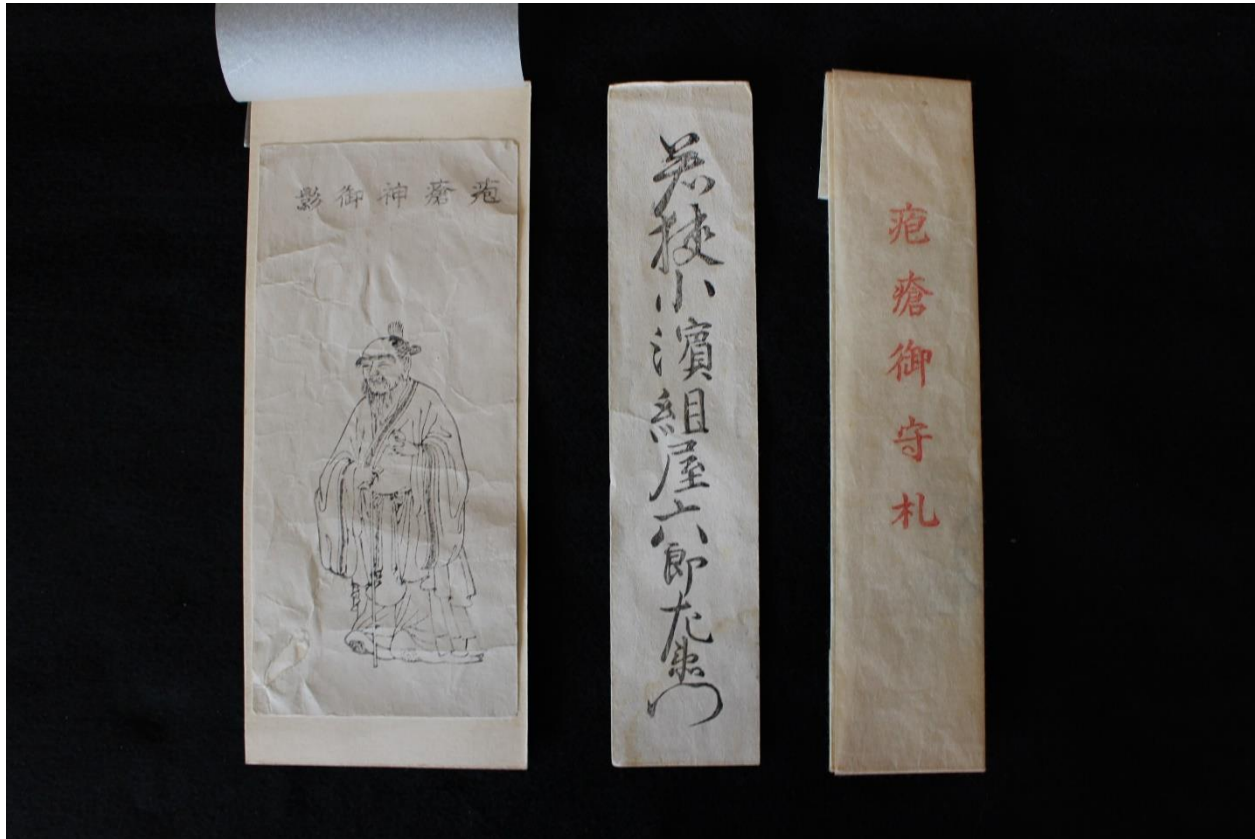 疱瘡神御影
若狹小濱組屋六郎左衛門
疱瘡御守札